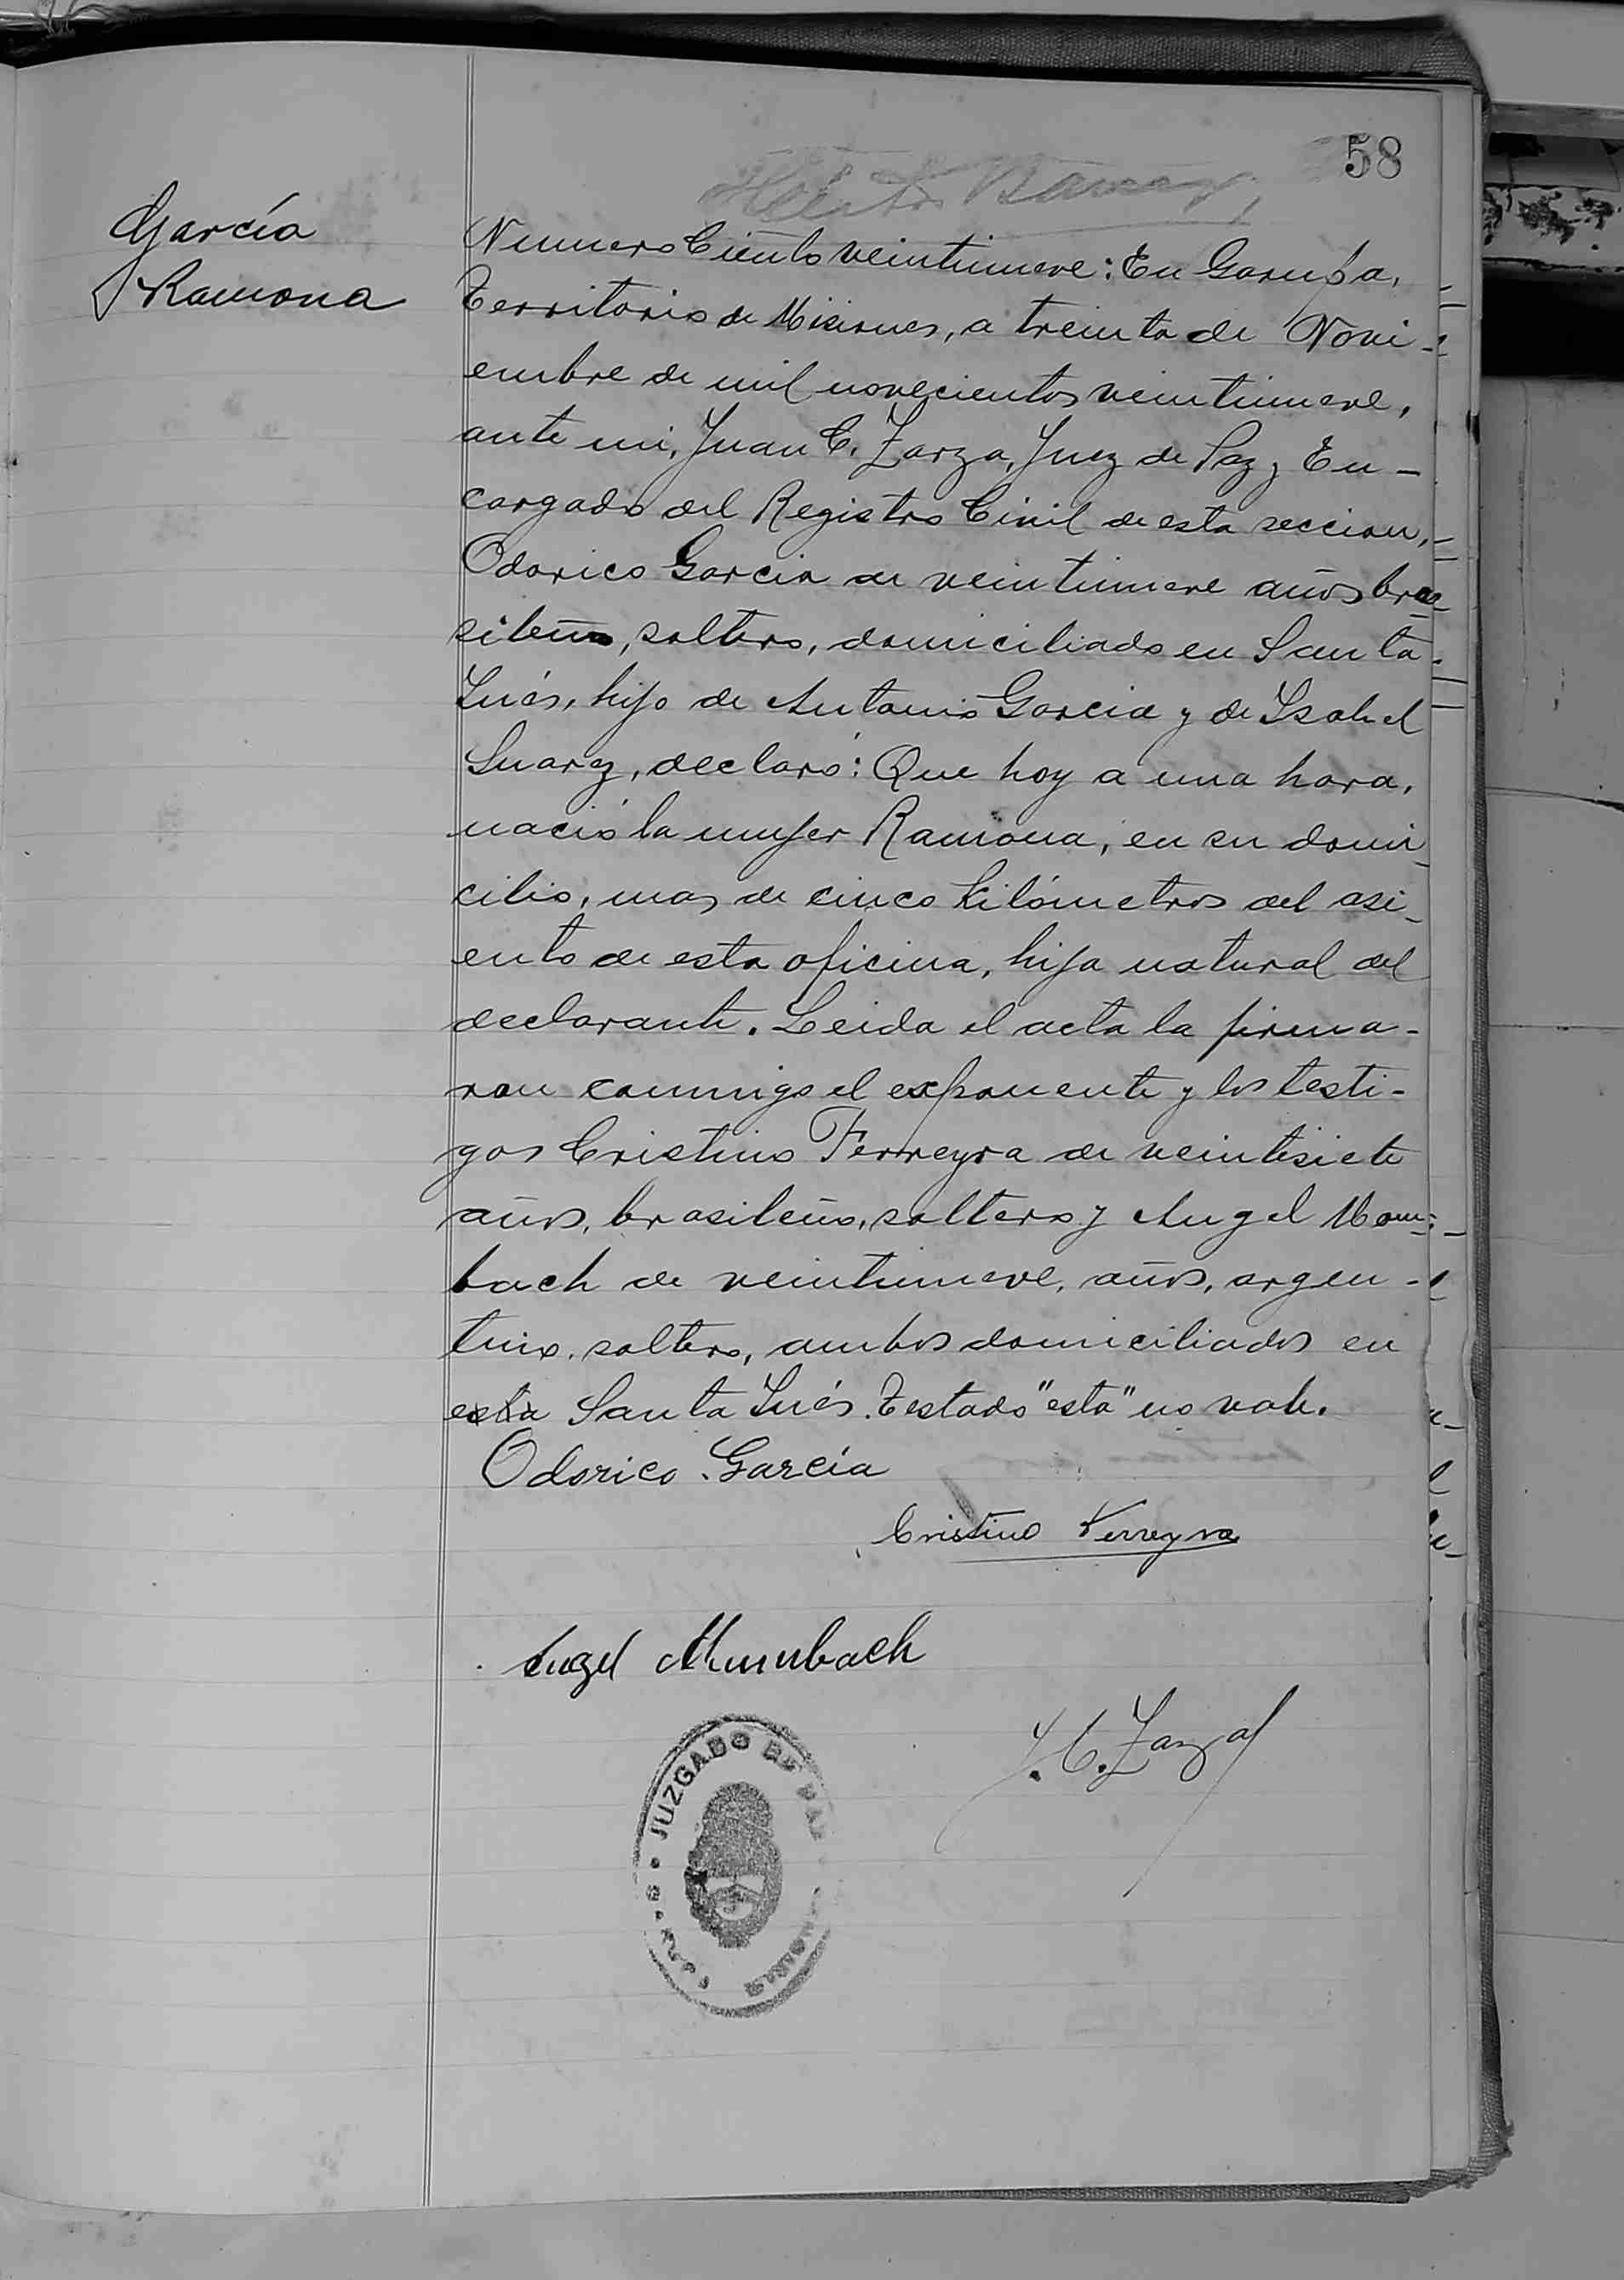 58
García
Ramona
Numero Ciento veintinueve: En Garupa,
Territorio de Misiones, a treinta de Novi-
embre de mil novecientos veintinueve,
ante mi, Juan C. Zarza, Juez de Paz y En-
cargado del Registro Civil de esta seccion,
Odorico Garcia de veintinueve años bra-
sileño, soltero, domiciliado en Santa
Inés, hijo de Antonio Garcia y de Isabel
Suarez, declaró: Que hoy a una hora,
nació la mujer Ramona, en su domi-
cilio, mas de cinco kilómetros del asi-
ento de esta oficina, hija natural del
declarante. Leida el acta la firma-
ron conmigo el exponente y los testi-
gos Cristino Ferreyra de veintisiete
años, brasileño, soltero y Angel Mom-
bach de veintinueve, años, argen-
tino, soltero, ambos domiciliados en
esta Santa Inés. Testado "esta" no vale.
Odorico Garcia
Cristino Ferreyra
Angel Mumbach
J. C. Zarza
JUZGADO DE PAZ
GARUPA
MISIONES